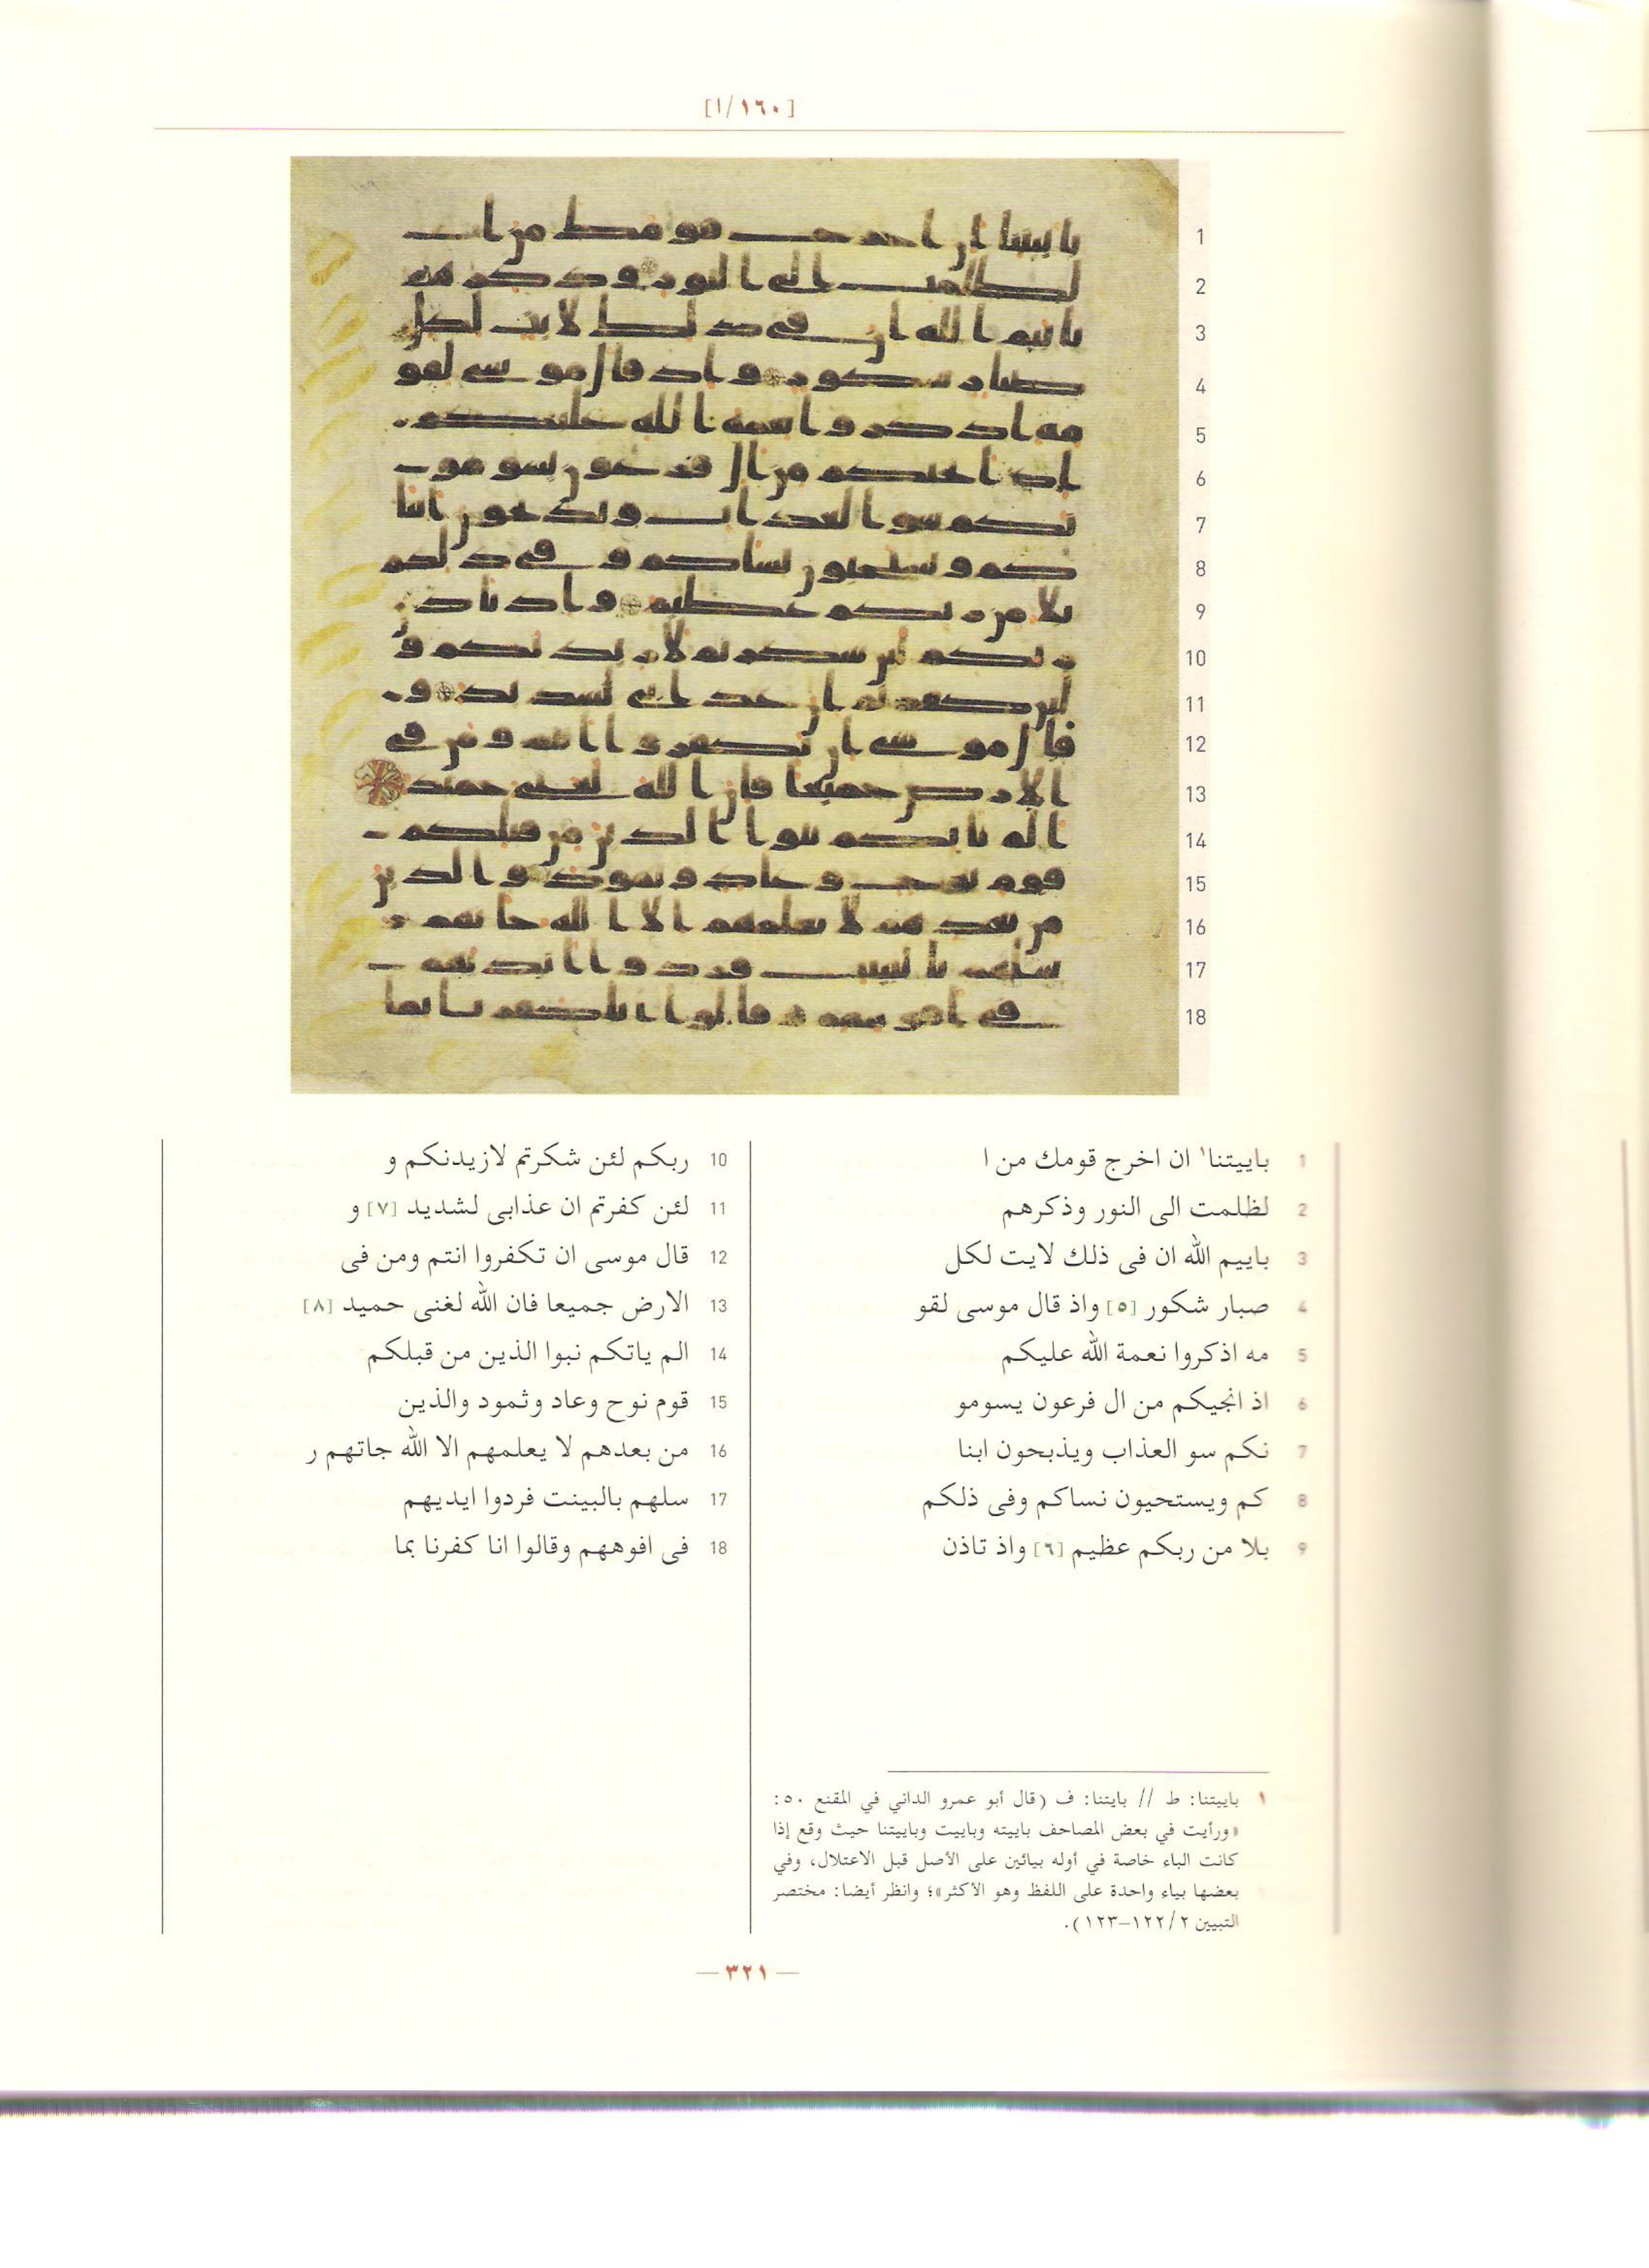 [١٦٠/ا]
1
2
3
4
5
6
7
8
9
10
11
12
13
14
15
16
17
18
1 باييتنا١ ان اخرج قومك من ا
2 لظلمت الى النور وذكرهم
3 باييم الله ان فى ذلك لايت لكل
4 صبار شكور [٥] واذ قال موسى لقو
5 مه اذكروا نعمة الله عليكم
6 اذ انجيكم من ال فرعون يسومو
7 نكم سو العذاب ويذبحون ابنا
8 كم ويستحيون نساكم وفى ذلكم
9 بلا من ربكم عظيم [٦] واذ تاذن
10 ربكم لئن شكرتم لازيدنكم و
11 لئن كفرتم ان عذابى لشديد [٧] و
12 قال موسى ان تكفروا انتم ومن فى
13 الارض جميعا فان الله لغنى حميد [٨]
14 الم ياتكم نبوا الذين من قبلكم
15 قوم نوح وعاد وثمود والذين
16 من بعدهم لا يعلمهم الا الله جاتهم ر
17 سلهم بالبينت فردوا ايديهم
18 فى افوههم وقالوا انا كفرنا بما
١ باييتنا: ط // بايتنا: ف (قال أبو عمرو الداني في المقنع ٥٠:
«ورأيت في بعض المصاحف باييته وباييت وباييتنا حيث وقع إذا
كانت الباء خاصة في أوله بيائين على الأصل قبل الاعتلال، وفي
بعضها بياء واحدة على اللفظ وهو الأكثر»؛ وانظر أيضا: مختصر
التبيين ٢/١٢٢-١٢٣).
— ٣٢١ —